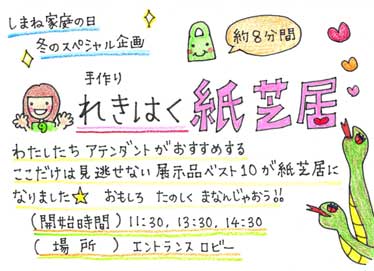 しまね家庭の日
冬のスペシャル企画
約8分間
手作り
れきはく紙芝居
わたしたち アテンダントがおすすめする
ここだけは見逃せない展示品ベスト10が紙芝居に
なりました★ おもしろ たのしく まなんじゃおう!!
(開始時間) 11:30, 13:30, 14:30
(場所) エントランスロビー